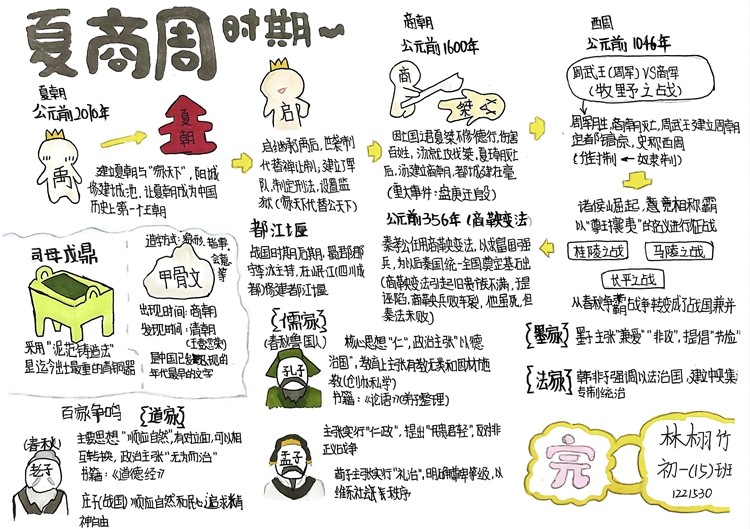 夏商周时期~
夏朝
公元前2070年
禹
夏朝
建立夏朝与“家天下”,阳城
修建城池,让夏朝成为中国
历史上第一个王朝
启
启继承禹后,世袭制
代替禅让制;建立了军
队,制定刑法,设置监
狱(家天下代替公天下)
商朝
公元前1600年
商
桀
因亡国之君夏桀不修德行,伤害
百姓,汤就攻伐桀,夏桀南灭亡
后,汤建立商朝,都城建在亳
(重大事件:盘庚迁殷)
西周
公元前1046年
周武王(周军)VS商军
(牧野之战)
周军胜,商南灭亡,周武王建立周朝
定都镐京,史称西周
(分封制←如宗制)
诸侯崛起,竞相称霸
以“尊王攘夷”的名义进行征战
桂陵之战
马陵之战
长平之战
从春秋争霸战争转变成了战国兼并
公元前356年(商鞅变法)
秦孝公任用商鞅变法,以求富国强
兵,为以后秦国统一全国奠定基石出
(商鞅变法引起旧贵族不满,于是
诬陷,商鞅兵败车裂,他虽死,但
秦法未败)
都江堰
战国时期后期,蜀郡郡
守李冰主持,在岷江(四川成
都)修建都江堰
司母戊鼎
采用“泥范铸造法”
是迄今出土最重的青铜器
造字方式:象形、指事、
会意
等
甲骨文
出现时间:商朝
发现时间:清朝
(王懿荣)
是中国已发现的
年代最早的文字
百家争鸣
{道家}
(春秋)
老子
主要思想“顺应自然”,有对立面,可以相
互转换,政治主张“无为而治”
书籍:《道德经》
庄子(战国)顺应自然和民心,追求精
神自由
{儒家}
(春秋鲁国人)
孔子
核心思想“仁”,政治主张“以德
治国”,教育上主张有教无类和因材施
教(创办私学)
书籍:《论语》(弟子整理)
孟子
主张实行“仁政”,提出“民贵君轻”,反对非
正义战争
荀子主张实行“礼治”,明确尊卑等级,以
维系社会秩序
{墨家}墨子主张“兼爱”“非攻”,提倡“节俭”
{法家}韩非子强调以法治国,建立中央集
专制统治
完
林栩竹
初一(15)班
1221530